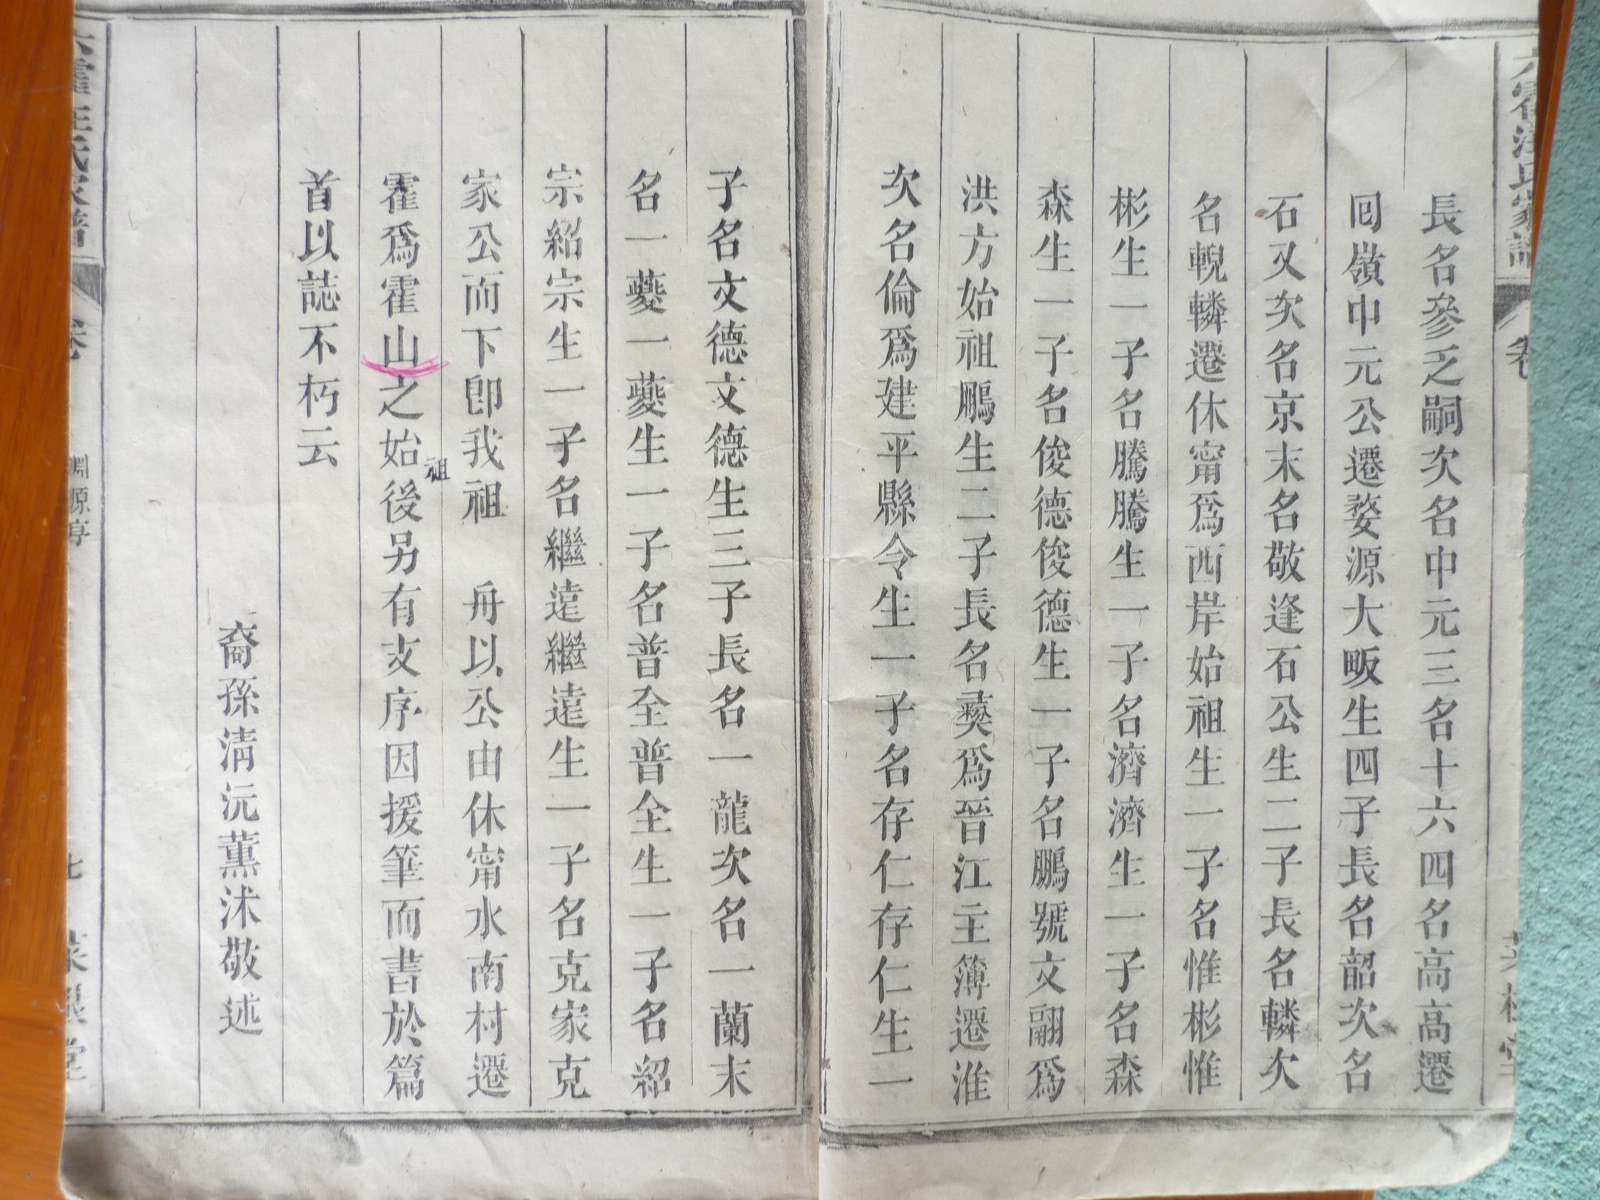 六霍汪氏家譜
長名參乏嗣次名中元三名十六四名高高遷
回嶺中元公遷婺源大畈生四子長名韶次名
石又次名京末名敬逢石公生二子長名轔次
名輗轔遷休甯爲西岸始祖生一子名惟彬惟
彬生一子名騰騰生一子名濟濟生一子名森
森生一子名俊德俊德生一子名鵬號文翮爲
洪方始祖鵬生二子長名彛爲晉江主簿遷淮
次名倫爲建平縣令生一子名存仁存仁生一
子名文德文德生三子長名一龍次名一蘭末
名一夔一夔生一子名普全普全生一子名紹
宗紹宗生一子名繼遠繼遠生一子名克家克
家公而下卽我祖 舟以公由休甯水南村遷
霍爲霍山之始祖後另有支序因援筆而書於篇
首以誌不朽云
裔孫淸沅薰沐敬述
六霍汪氏家譜
卷
淵源序
七
堂